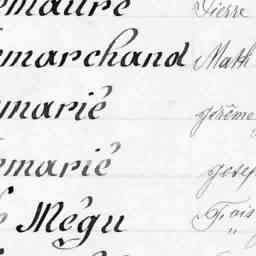 emaure Pierre
emarchand Math
emarié jérôme
emarié josep
e Mégu Fçois